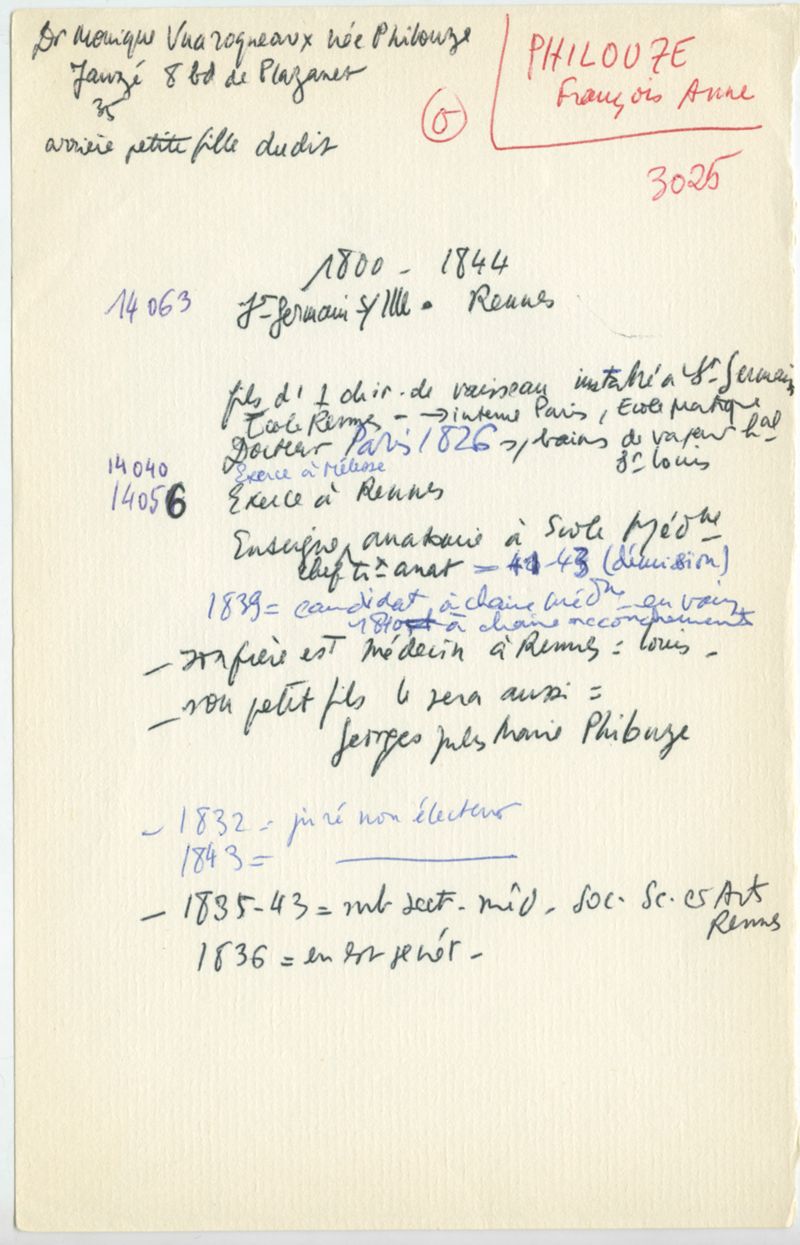 Dr Monique Vuazoqueaux née Philouze
Janzé 8 bd de Plazanet
35
arrière petite fille dudit
PHILOUZE
François Anne
6
3025
1800 - 1844
14063 St-Germain s/ Ille . Rennes
fils d'1 chir. de vaisseau installé à St-Germain
Ecole Rennes - → interne Paris, Ecole Pratique
Docteur Paris 1826 bains de vapeur hal
St Louis
14040 Exerce à Mélesse
14056 Exerce à Rennes
Enseigne anatomie à Ecole Médne
chef tx anat = 41-43 (démission)
1839 = candidat à chaire Médne en vain
1840 à chaire accouchements
- son frère est médecin à Rennes = Louis -
- son petit fils le sera aussi =
Georges Jules Marie Philouze
- 1832 = juré non électeur
1843 = ——
- 1835-43 = sect. méd. Soc. Sc. et Arts
Rennes
1836 = en est secrét -